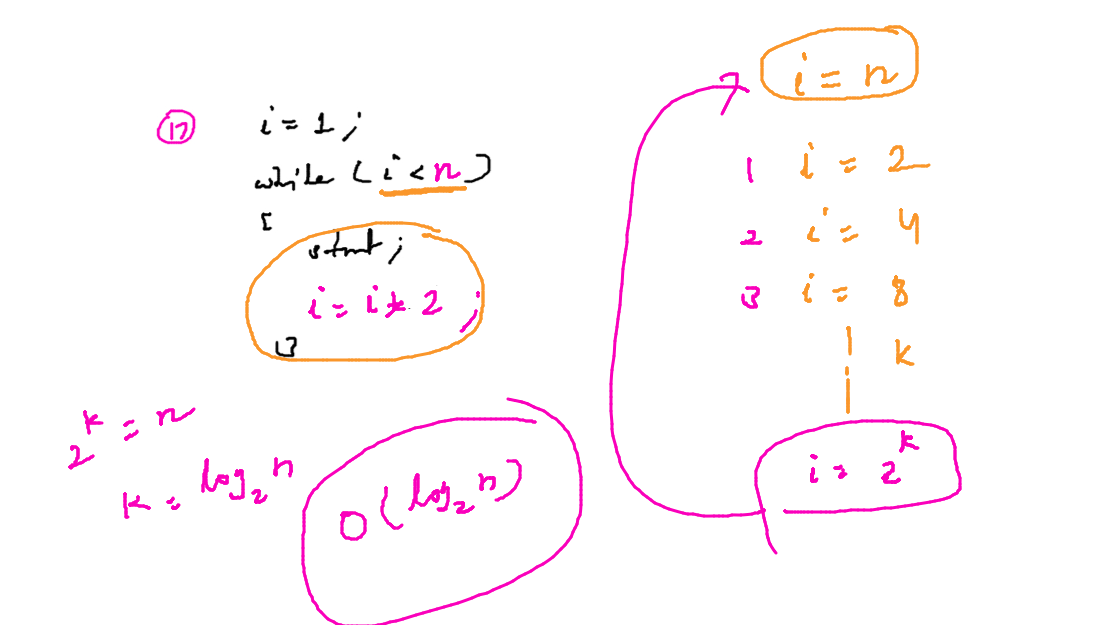 17
i = 1 ;
while ( i < n )
{
stmt ;
i = i * 2 ;
}
2^k = n
k = log₂ n
O ( log₂ n )
i = n
1 i = 2
2 i = 4
3 i = 8
k
i = 2^k